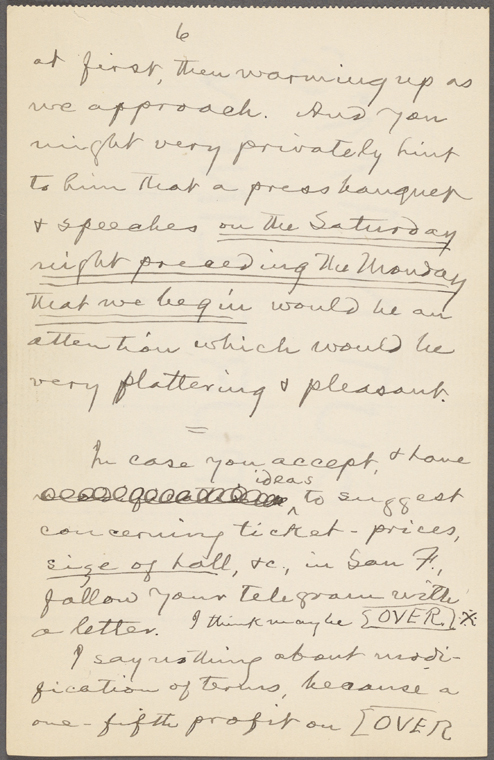 6
at first, then warming up as
we approach. And you
might very privately hint
to him that a press banquet
& speeches on the Saturday
night preceding the Monday
that we begin would be an
attention which would be
very flattering & pleasant.
=
In case you accept, & have
ideas
^ to suggest
concerning ticket-prices,
size of hall, &c., in San F.,
follow your telegram with
a letter. I think maybe [OVER.] X
I say nothing about modi-
fication of terms, because a
one-fifth profit on [OVER